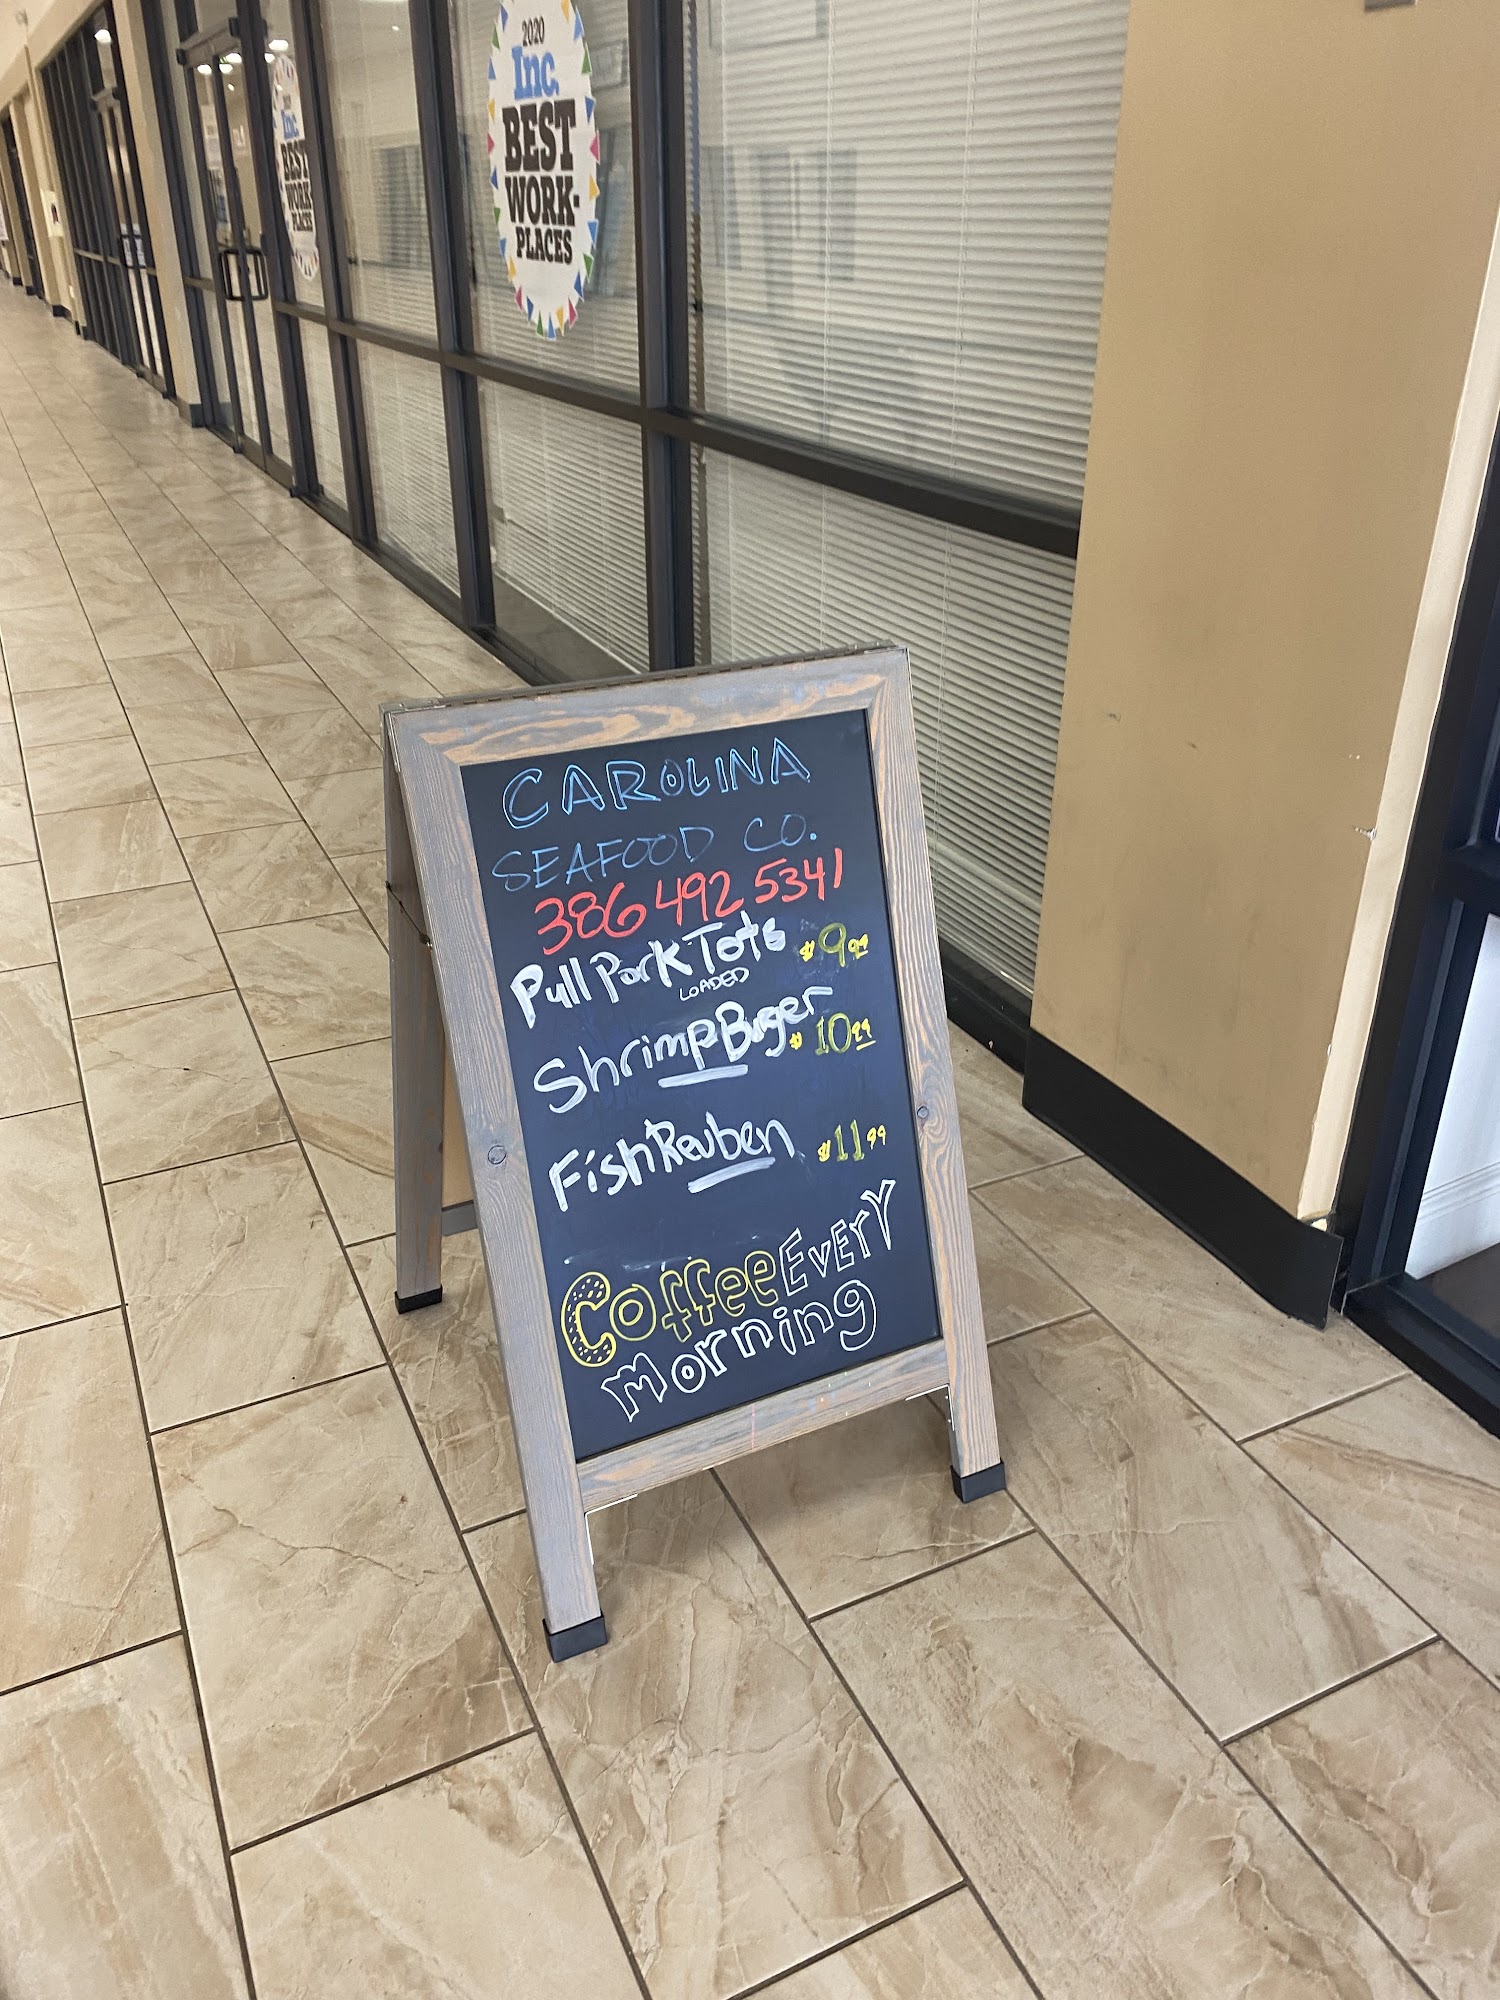 2020
Inc.
BEST
WORK-
PLACES
Inc.
BEST
WORK-
PLACES
CAROLINA
SEAFOOD CO.
386 492 5341
Pull Pork Tots $9.99
LOADED
Shrimp Burger $10.99
Fish Reuben $11.99
Coffee EVErY
morning